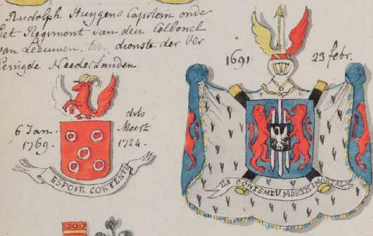 Rudolph Huygens Capitem onder
het Regiment van den Collonel
van Leeuwen, ten dienste der Ver
Eenigde Neederlanden
1691 23 febr.
6 Jan. 1769.
Meert 1724.
ESPOIR CONTENTE